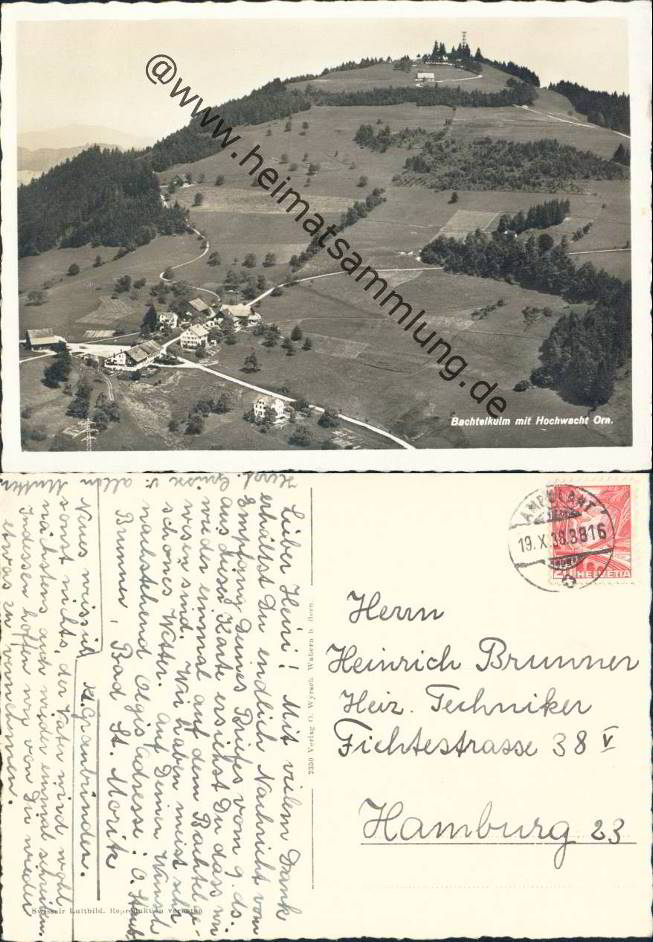 @www.heimatsammlung.de
Bachtelkulm mit Hochwacht Orn.
AMBULANT
19.X.38.3816
HELVETIA
Herrn
Heinrich Brunner
Heiz. Techniker
Fichtestrasse 38 V
Hamburg 23
2350 Verlag O. Wyrsch Wabern b. Bern.
Lieber Heini! Mit vielem Dank
erhältst Du endlich Nachricht vom
Empfang Deines Briefes vom 9. ds.
aus dieser Karte ersiehst Du dass wir
wieder einmal auf dem Bachtel ge-
wesen sind. Wir haben meist sehr
schönes Wetter. Auf Deinen Wunsch
nachstehend Olgis Adresse: O.
Brunner, Bad St. Moritz
Graubünden.
Neues weiss ich
sonst nichts, der Vater wird wohl
nächstens auch wieder einmal schreiben
Indessen hoffen wir von Dir wieder
etwas zu vernehmen.
Herzl. Grüsse v. allen Mutter
Swissair Luftbild. Reproduktion verboten